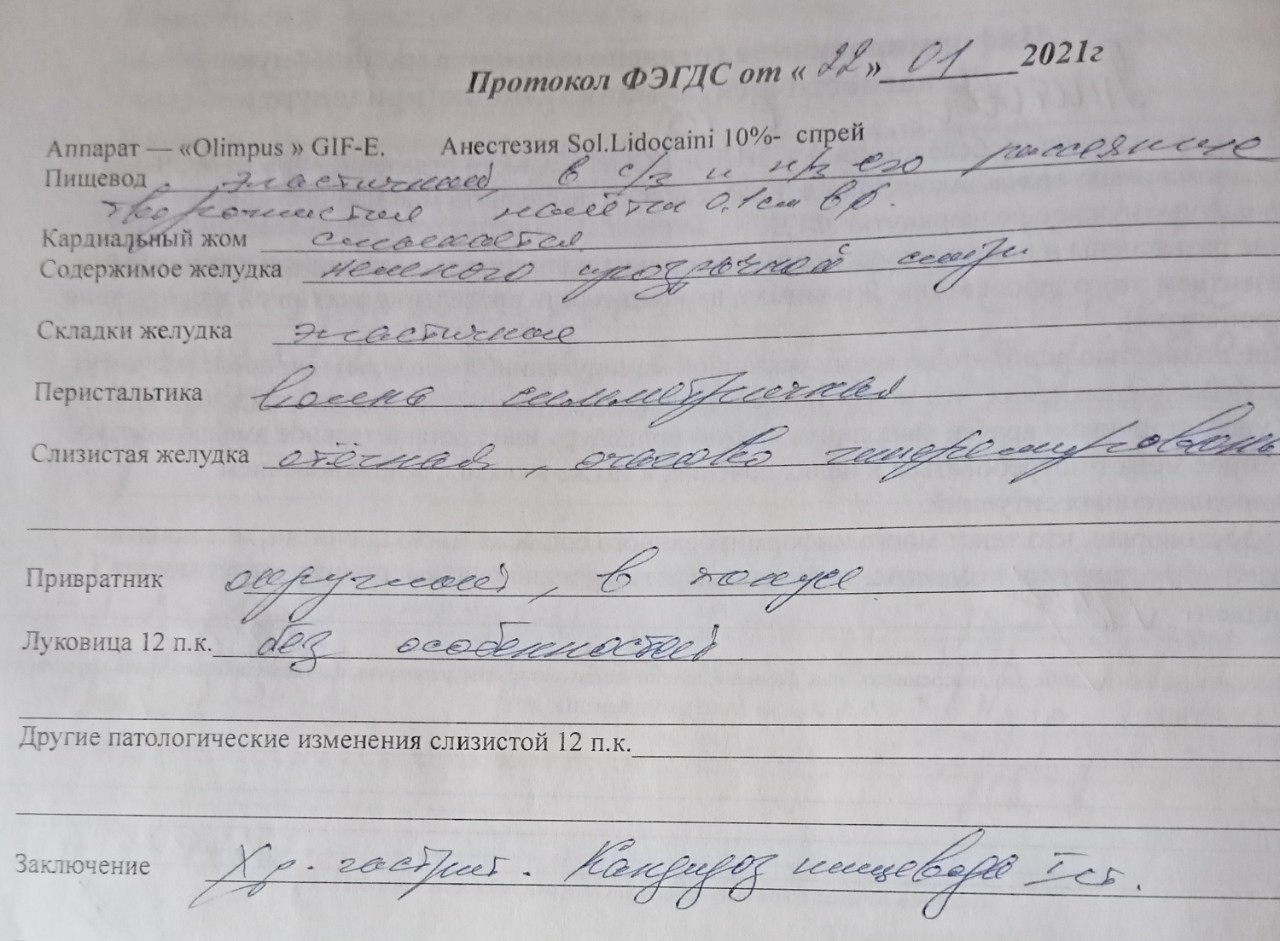 Протокол ФЭГДС от « 22 » 01 2021г
Аппарат — «Olimpus » GIF-E. Анестезия Sol.Lidocaini 10%- спрей
Пищевод эластичный, в с/з и н/з его рассеянные
творожистые налёты 0.1см в р.
Кардиальный жом смыкается
Содержимое желудка немного прозрачной слизи
Складки желудка эластичные
Перистальтика волна симметричная
Слизистая желудка отечная, очагово
Привратник округлый, в тонусе
Луковица 12 п.к. без особенностей
Другие патологические изменения слизистой 12 п.к.
Заключение Хр. гастрит. Кандидоз пищевода I ст.